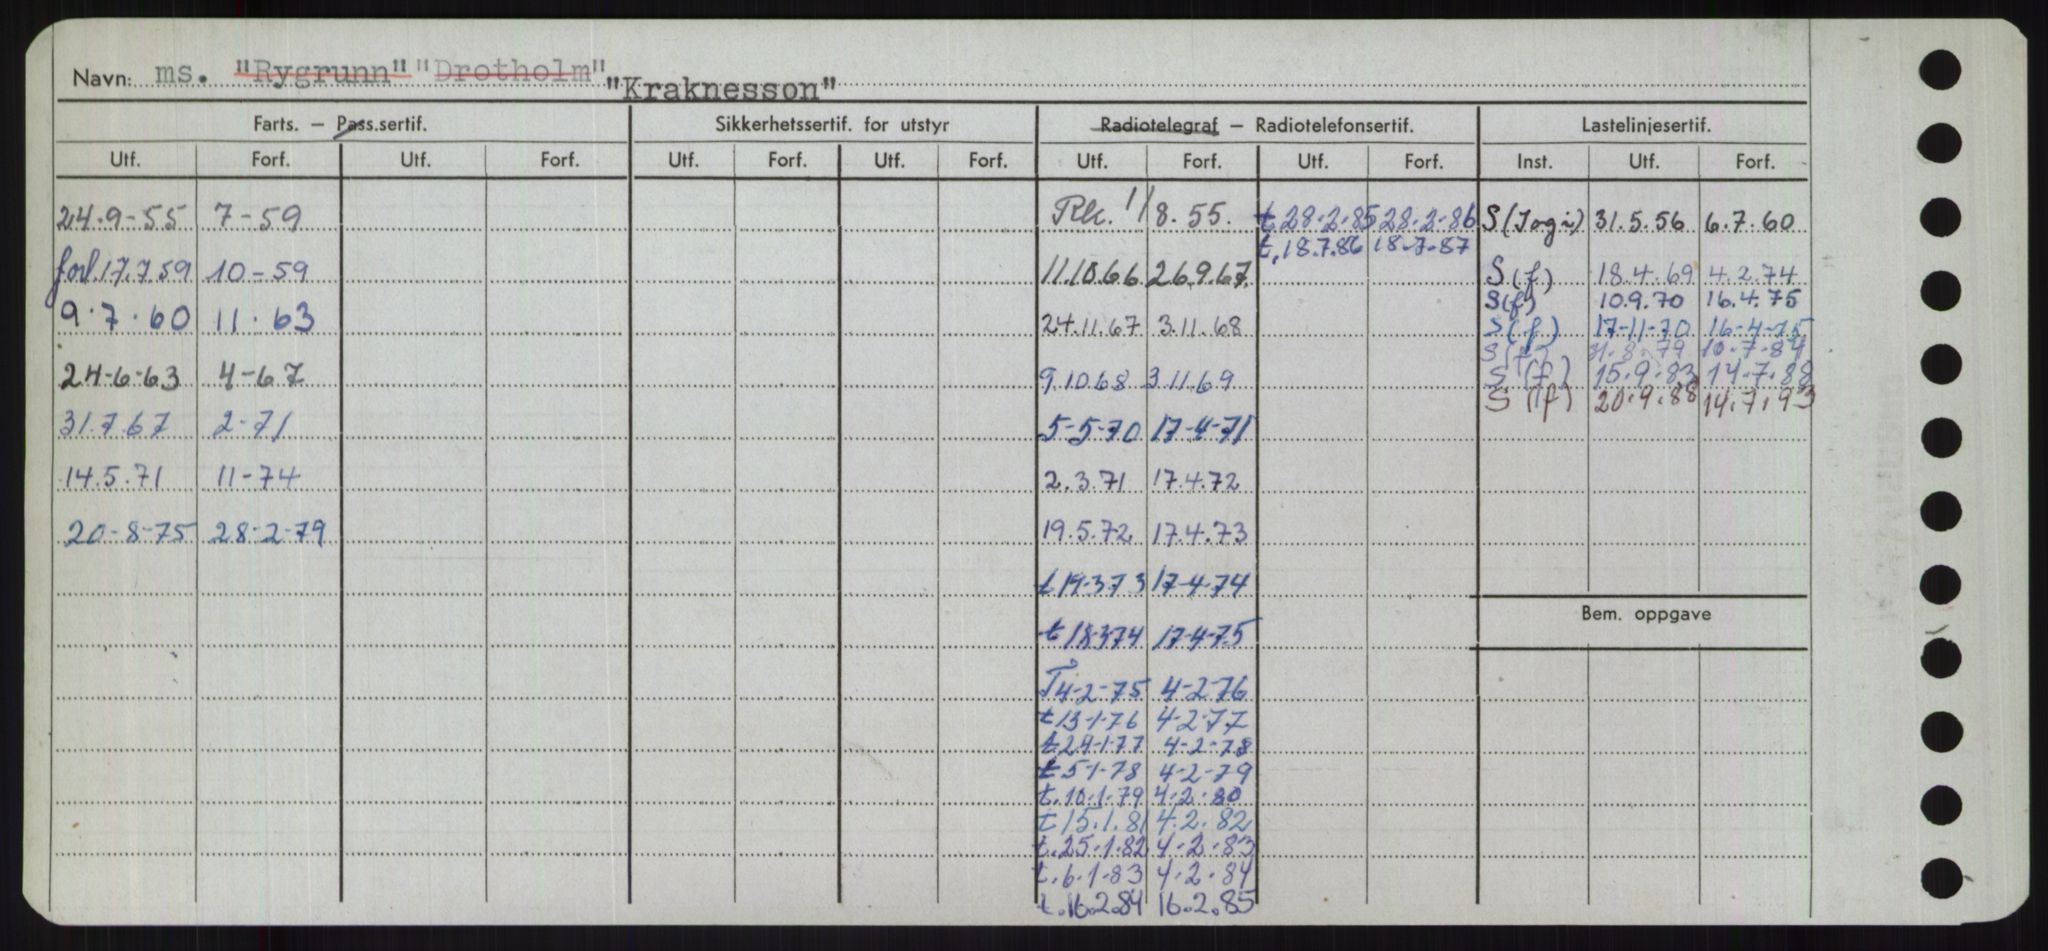 Navn: ms. "Rygrunn" "Drotholm" "Kraknesson"
Farts. — Pass.sertif. Sikkerhetssertif. for utstyr Radiotelegraf — Radiotelefonsertif. Lastelinjesertif.
Utf. Forf. Utf. Forf. Utf. Forf. Utf. Forf. Utf. Forf. Utf. Forf. Inst. Utf. Forf.
24.9-55 7-59 Rk. 1/8.55. t 28.2.85 28.2.86 S (Jogi) 31.5.56 6.7.60
t. 18.7.86 18.7.87
forl. 17.7.59 10-59 11.10.66 26.9.67. S (f) 18.4.69 4.2.74
S(f) 10.9.70 16.4.75
9.7.60 11.63 24.11.67 3.11.68 S (f) 17-11-70 16-4-75
S (f) 31.8.79 10.7.84
24-6-63 4-67 9.10.68 3.11.69 S (f) 15.9.83 14.7.88
S (f) 20.9.88 14.7.93
31.7.67 2-71 5-5-70 17-4-71
14.5.71 11-74 2.3.71 17.4.72
20-8-75 28-2-79 19.5.72. 17.4.73
t 19-3.73 17-4-74
Bem. oppgave
t 18-3.74 17-4-75
T 4-2-75 4-2-76
t 13-1-76 4-2-77
t 24-1-77 4-2-78
t 5-1-78 4-2-79
t. 10.1.79 4.2.80
t 15.1.81 4.2.82
t. 25.1.82 4.2.83
t. 6.1.83 4.2.84
t. 16.2.84 16.2.85